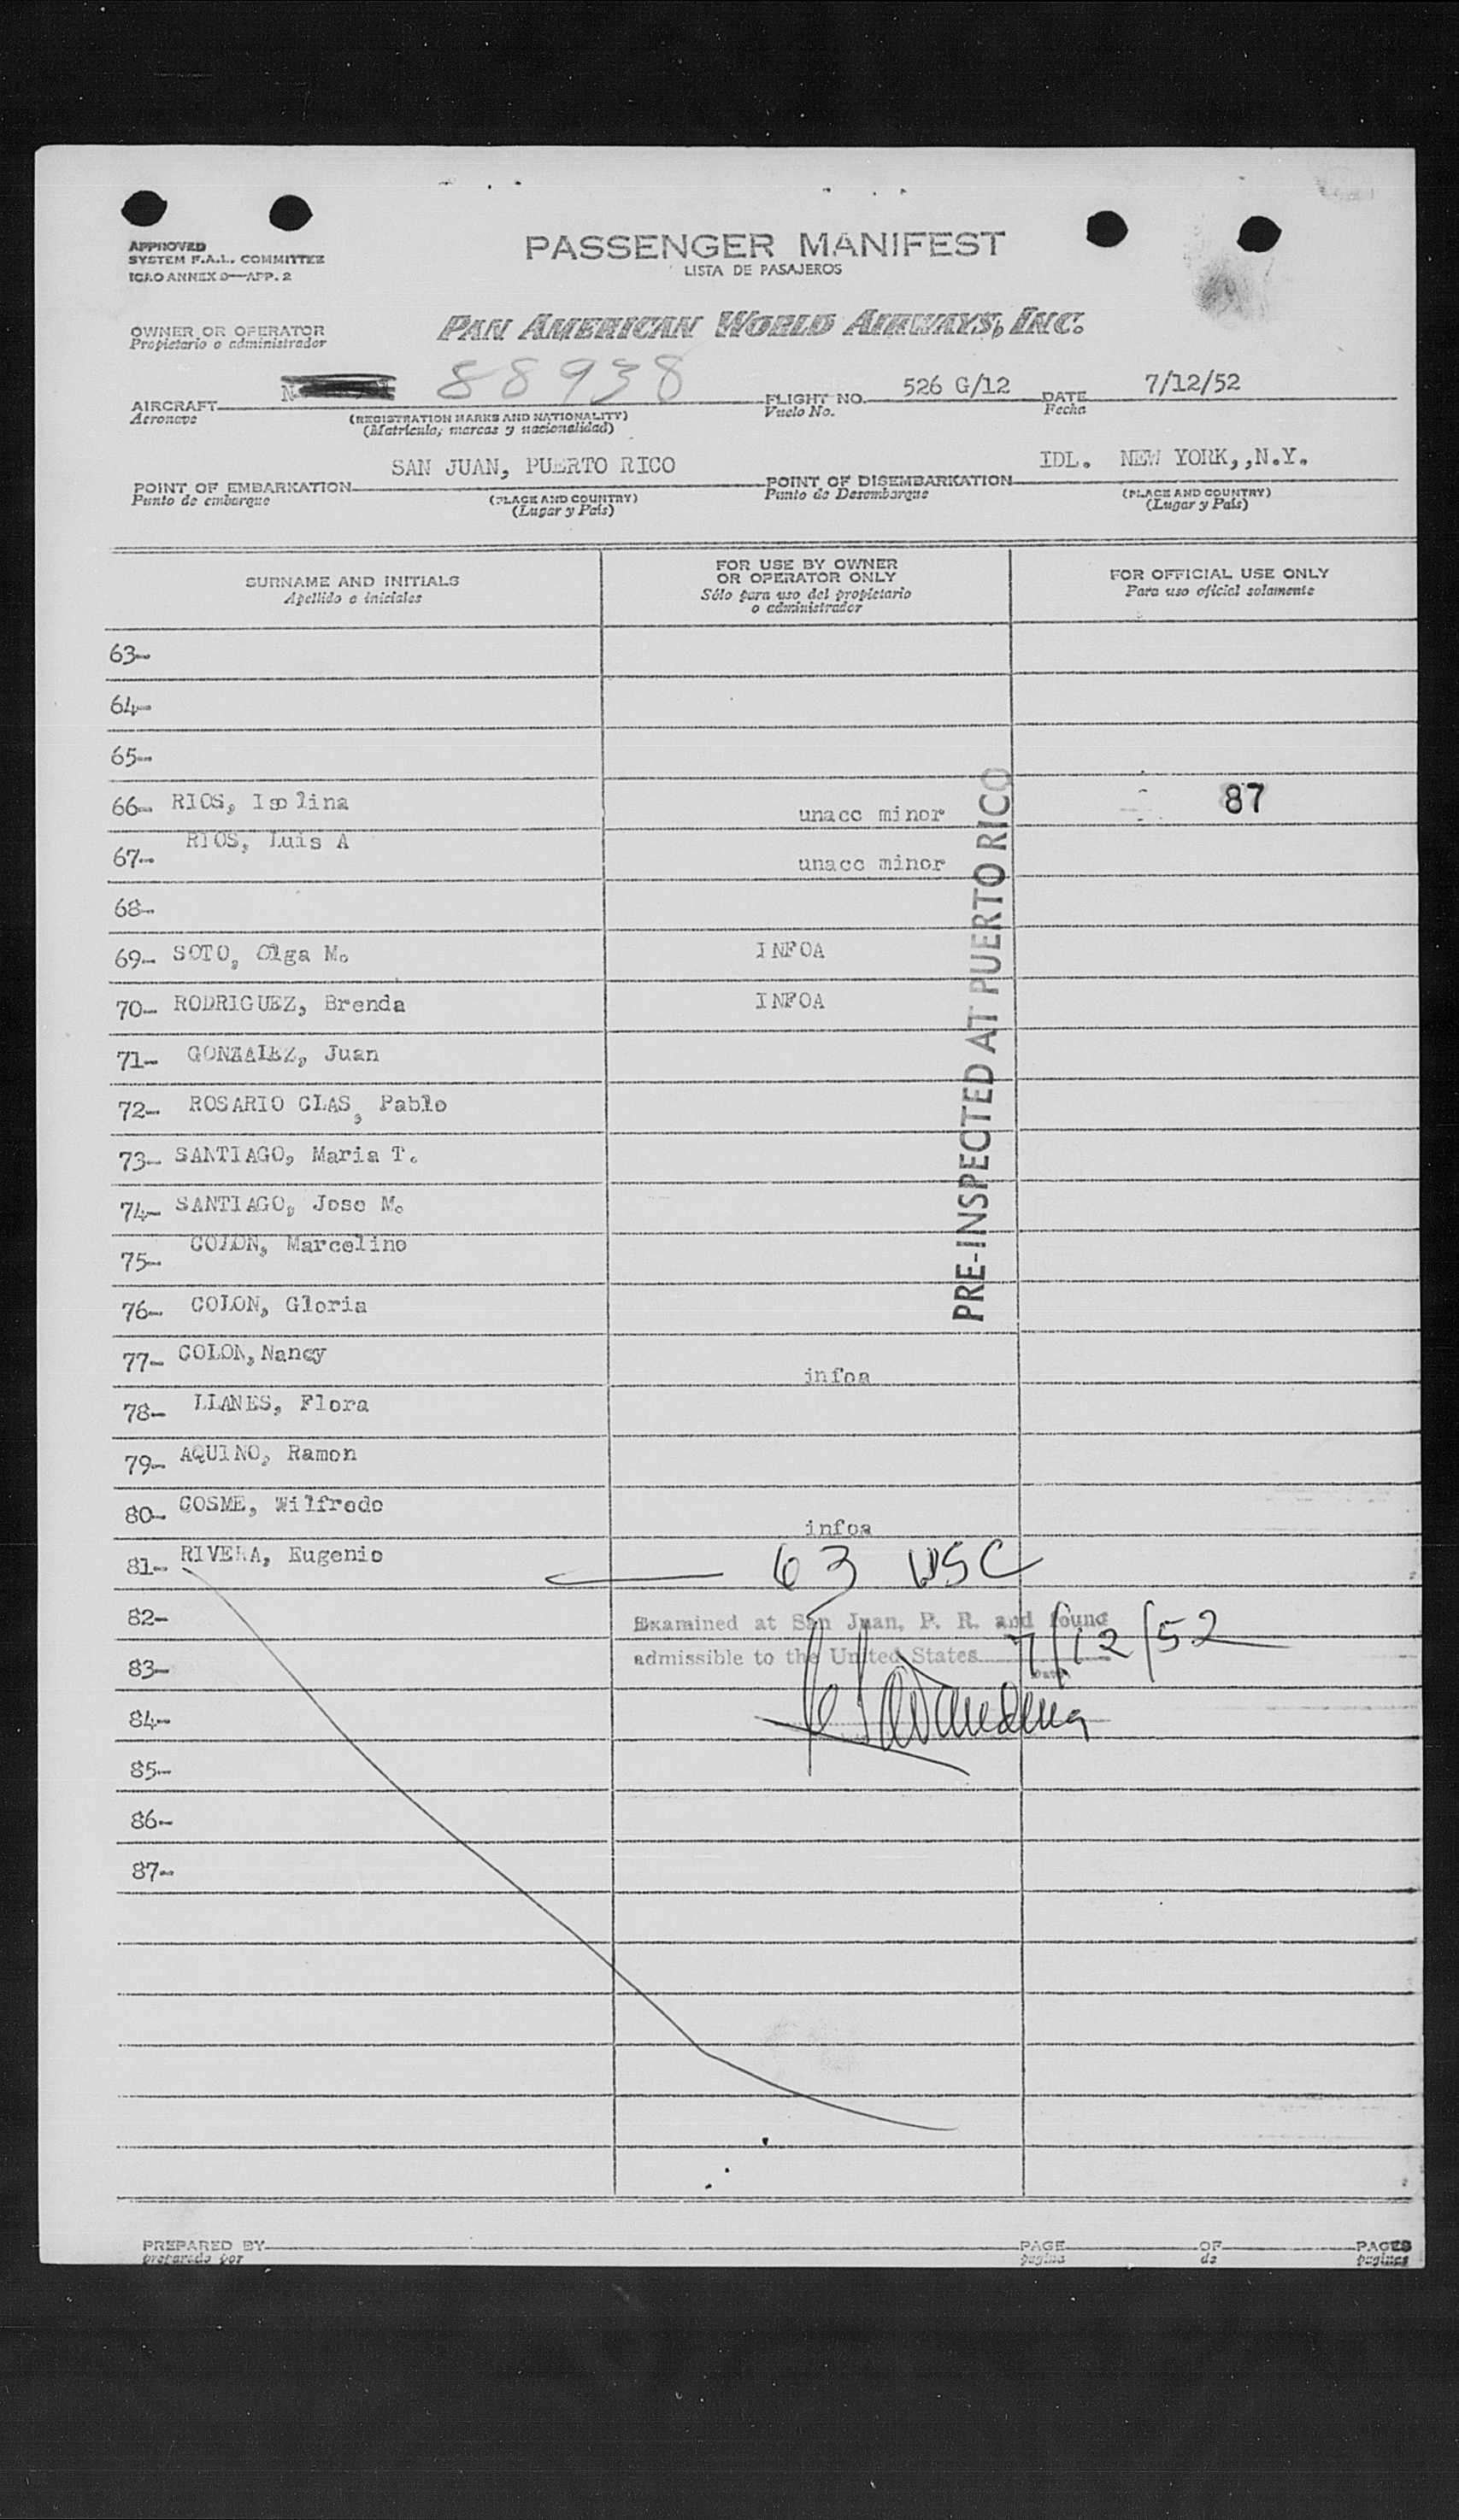 APPROVED
SYSTEM F.A.L. COMMITTEE
ICAO ANNEX 9—APP. 2
PASSENGER MANIFEST
LISTA DE PASAJEROS
OWNER OR OPERATOR
Propietario o administrador
PAN AMERICAN WORLD AIRWAYS, INC.
AIRCRAFT N 88938
Aeronave
(REGISTRATION MARKS AND NATIONALITY)
(Matrícula, marcas y nacionalidad)
FLIGHT NO. 526 G/12
Vuelo No.
DATE 7/12/52
Fecha
POINT OF EMBARKATION SAN JUAN, PUERTO RICO
Punto de embarque
(PLACE AND COUNTRY)
(Lugar y País)
POINT OF DISEMBARKATION IDL. NEW YORK,,N.Y.
Punto de Desembarque
(PLACE AND COUNTRY)
(Lugar y País)
SURNAME AND INITIALS
Apellido e iniciales
FOR USE BY OWNER
OR OPERATOR ONLY
Sólo para uso del propietario
o administrador
FOR OFFICIAL USE ONLY
Para uso oficial solamente
63-
64-
65-
66- RIOS, Isolina unacc minor 87
67- RIOS, Luis A unacc minor
68-
69- SOTO, Olga M. INFOA
70- RODRIGUEZ, Brenda INFOA
71- GONZALEZ, Juan
72- ROSARIO CLAS, Pablo
73- SANTIAGO, Maria T.
74- SANTIAGO, Jose M.
75- COLON, Marcelino
76- COLON, Gloria
77- COLON, Nancy infoa
78- LLANES, Flora
79- AQUINO, Ramon
80- COSME, Wilfredo infoa
81- RIVERA, Eugenio 63 USC
PRE-INSPECTED AT PUERTO RICO
82-
Examined at San Juan, P. R. and found
admissible to the United States 7/12/52
Date
83-
84-
85-
86-
87-
PREPARED BY
preparado por
PAGE OF PAGES
pagina de paginas